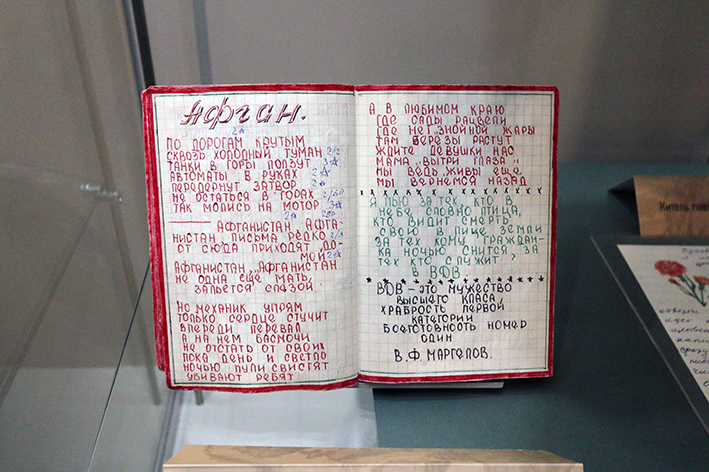 Афган.
ПО ДОРОГАМ КРУТЫМ
СКВОЗЬ ХОЛОДНЫЙ ТУМАН
ТАНКИ В ГОРЫ ПОЛЗУТ
АВТОМАТЫ В РУКАХ
ПЕРЕДЕРНУТ ЗАТВОР
НЕ ОСТАТЬСЯ В ГОРАХ
ТАК МОЛИСЬ НА МОТОР
АФГАНИСТАН АФГА-
НИСТАН, ПИСЬМА РЕДКО
ОТ СЮДА ПРИХОДЯТ ДО-
МОЙ
АФГАНИСТАН, АФГАНИСТАН
НЕ ОДНА ЕЩЕ МАТЬ,
ЗАЛЬЕТСЯ СЛАЗОЙ
НО МЕХАНИК УПРЯМ
ТОЛЬКО СЕРДЦЕ СТУЧИТ
ВПЕРЕДИ ПЕРЕВАЛ
А НА НЕМ БАСМОЧИ
НЕ ОТСТАТЬ ОТ СВОИХ
ПОКА ДЕНЬ И СВЕТЛО
НОЧЬЮ ПУЛИ СВИСТЯТ
УБИВАЮТ РЕБЯТ
А В ЛЮБИМОМ КРАЮ
ГДЕ САДЫ РАЦВЕЛИ
ГДЕ НЕТ ЗНОЙНОЙ ЖАРЫ
ТАМ БЕРЕЗЫ РАСТУТ
ЖДИТЕ ДЕВУШКИ НАС
МАМА, ВЫТРИ ГЛАЗА,
МЫ ВЕДЬ ЖИВЫ ЕЩЕ
МЫ ВЕРНЕМСЯ НАЗАД
Я ПЬЮ ЗА ТЕХ КТО В
НЕБЕ СЛОВНО ПТИЦА,
КТО ВИДИТ СМЕРТЬ
СВОЮ В ЛИЦЕ ЗЕМЛИ
ЗА ТЕХ КОМУ "ГРАЖДАН-
КА НОЧЬЮ СНИТСЯ, ЗА
ТЕХ КТО СЛУЖИТ,
В ВДВ.
ВДВ - ЭТО МУЖЕСТВО
ВЫСШЕГО КЛАСА,
ХРАБРОСТЬ ПЕРВОЙ
КАТЕГОРИИ
БОЕГОТОВНОСТЬ НОМЕР
ОДИН
В.Ф. МАРГЕЛОВ.
Китель